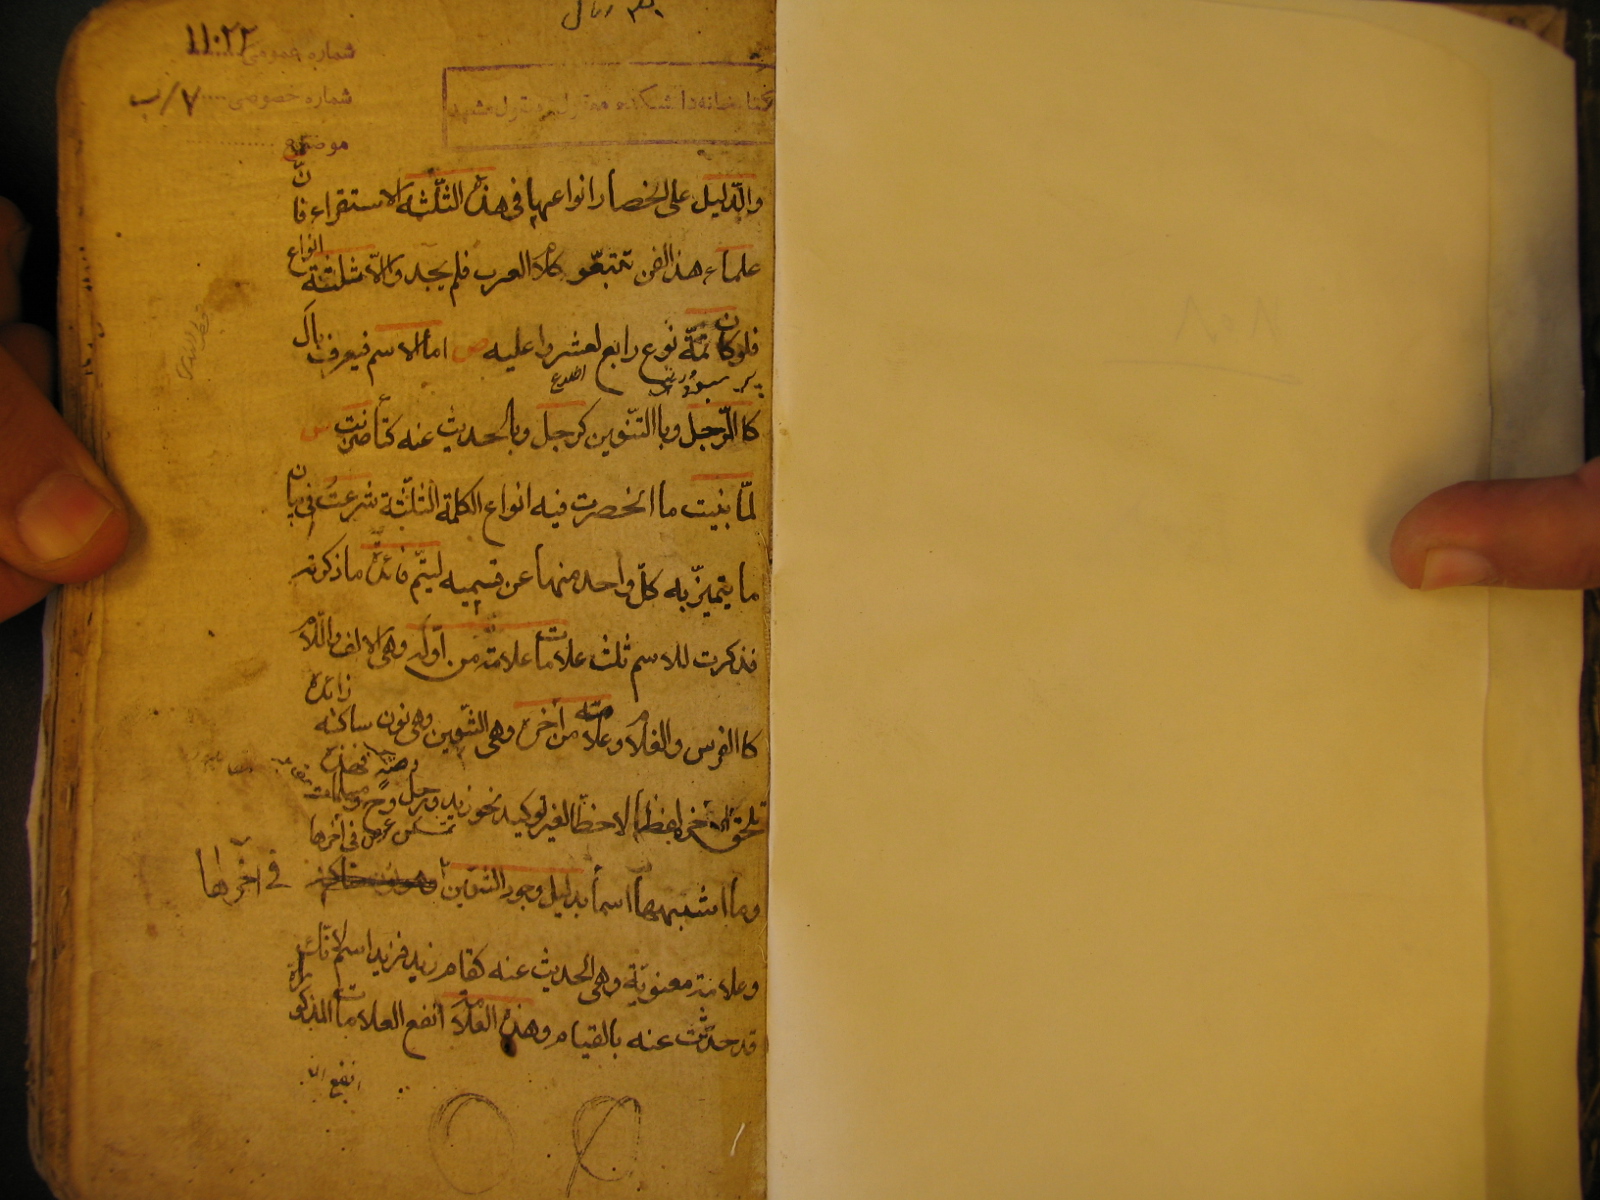 شماره عمومی ۱۱۰۲۲
شماره خصوصی ۷/ب
موضوع
والدّليل على انحصار انواعها فى هذه الثّلثة الاستقراء فانّ
علماء هذ الفن تتبّعو كلام العرب فلم يجدوا الّا ثلثة انواع
فلو كان ثمّة نوع رابع لعشروا عليه ص اما الاسم فيعرف بال
اطلاع
كا الرّجل وبا التنّوين كرجل وبالحديث عنه كتأ ضربت س
لمّا بيّنت ما انحصرت فيه انواع الكلمة الثلثة شرعت فى بيان
ما يتميّز به كلّ واحد منها عن قسيميه ليتّم فائدة ما ذكرته
فذكرت للاسم ثلث علامات علامة من اوّله وهى الالف واللّام
كا الفرس والغلام وعلامة من آخره وهى التنّوين وهى نون ساكنة زائدة
تلحق الآخر لفظا لا خطّا لغير توكيد نحو زيد ورجل وصهٍ وحينئذ ومسلمات
وما اشبهها اسما بدليل وجود التنوين فى آخرها
وعلامة معنويّة وهى الحديث عنه كقام زيد فزيد اسم لانّك
قد حدّثت عنه بالقيام وهذه العلامة انفع العلامات المذكورة
انفع